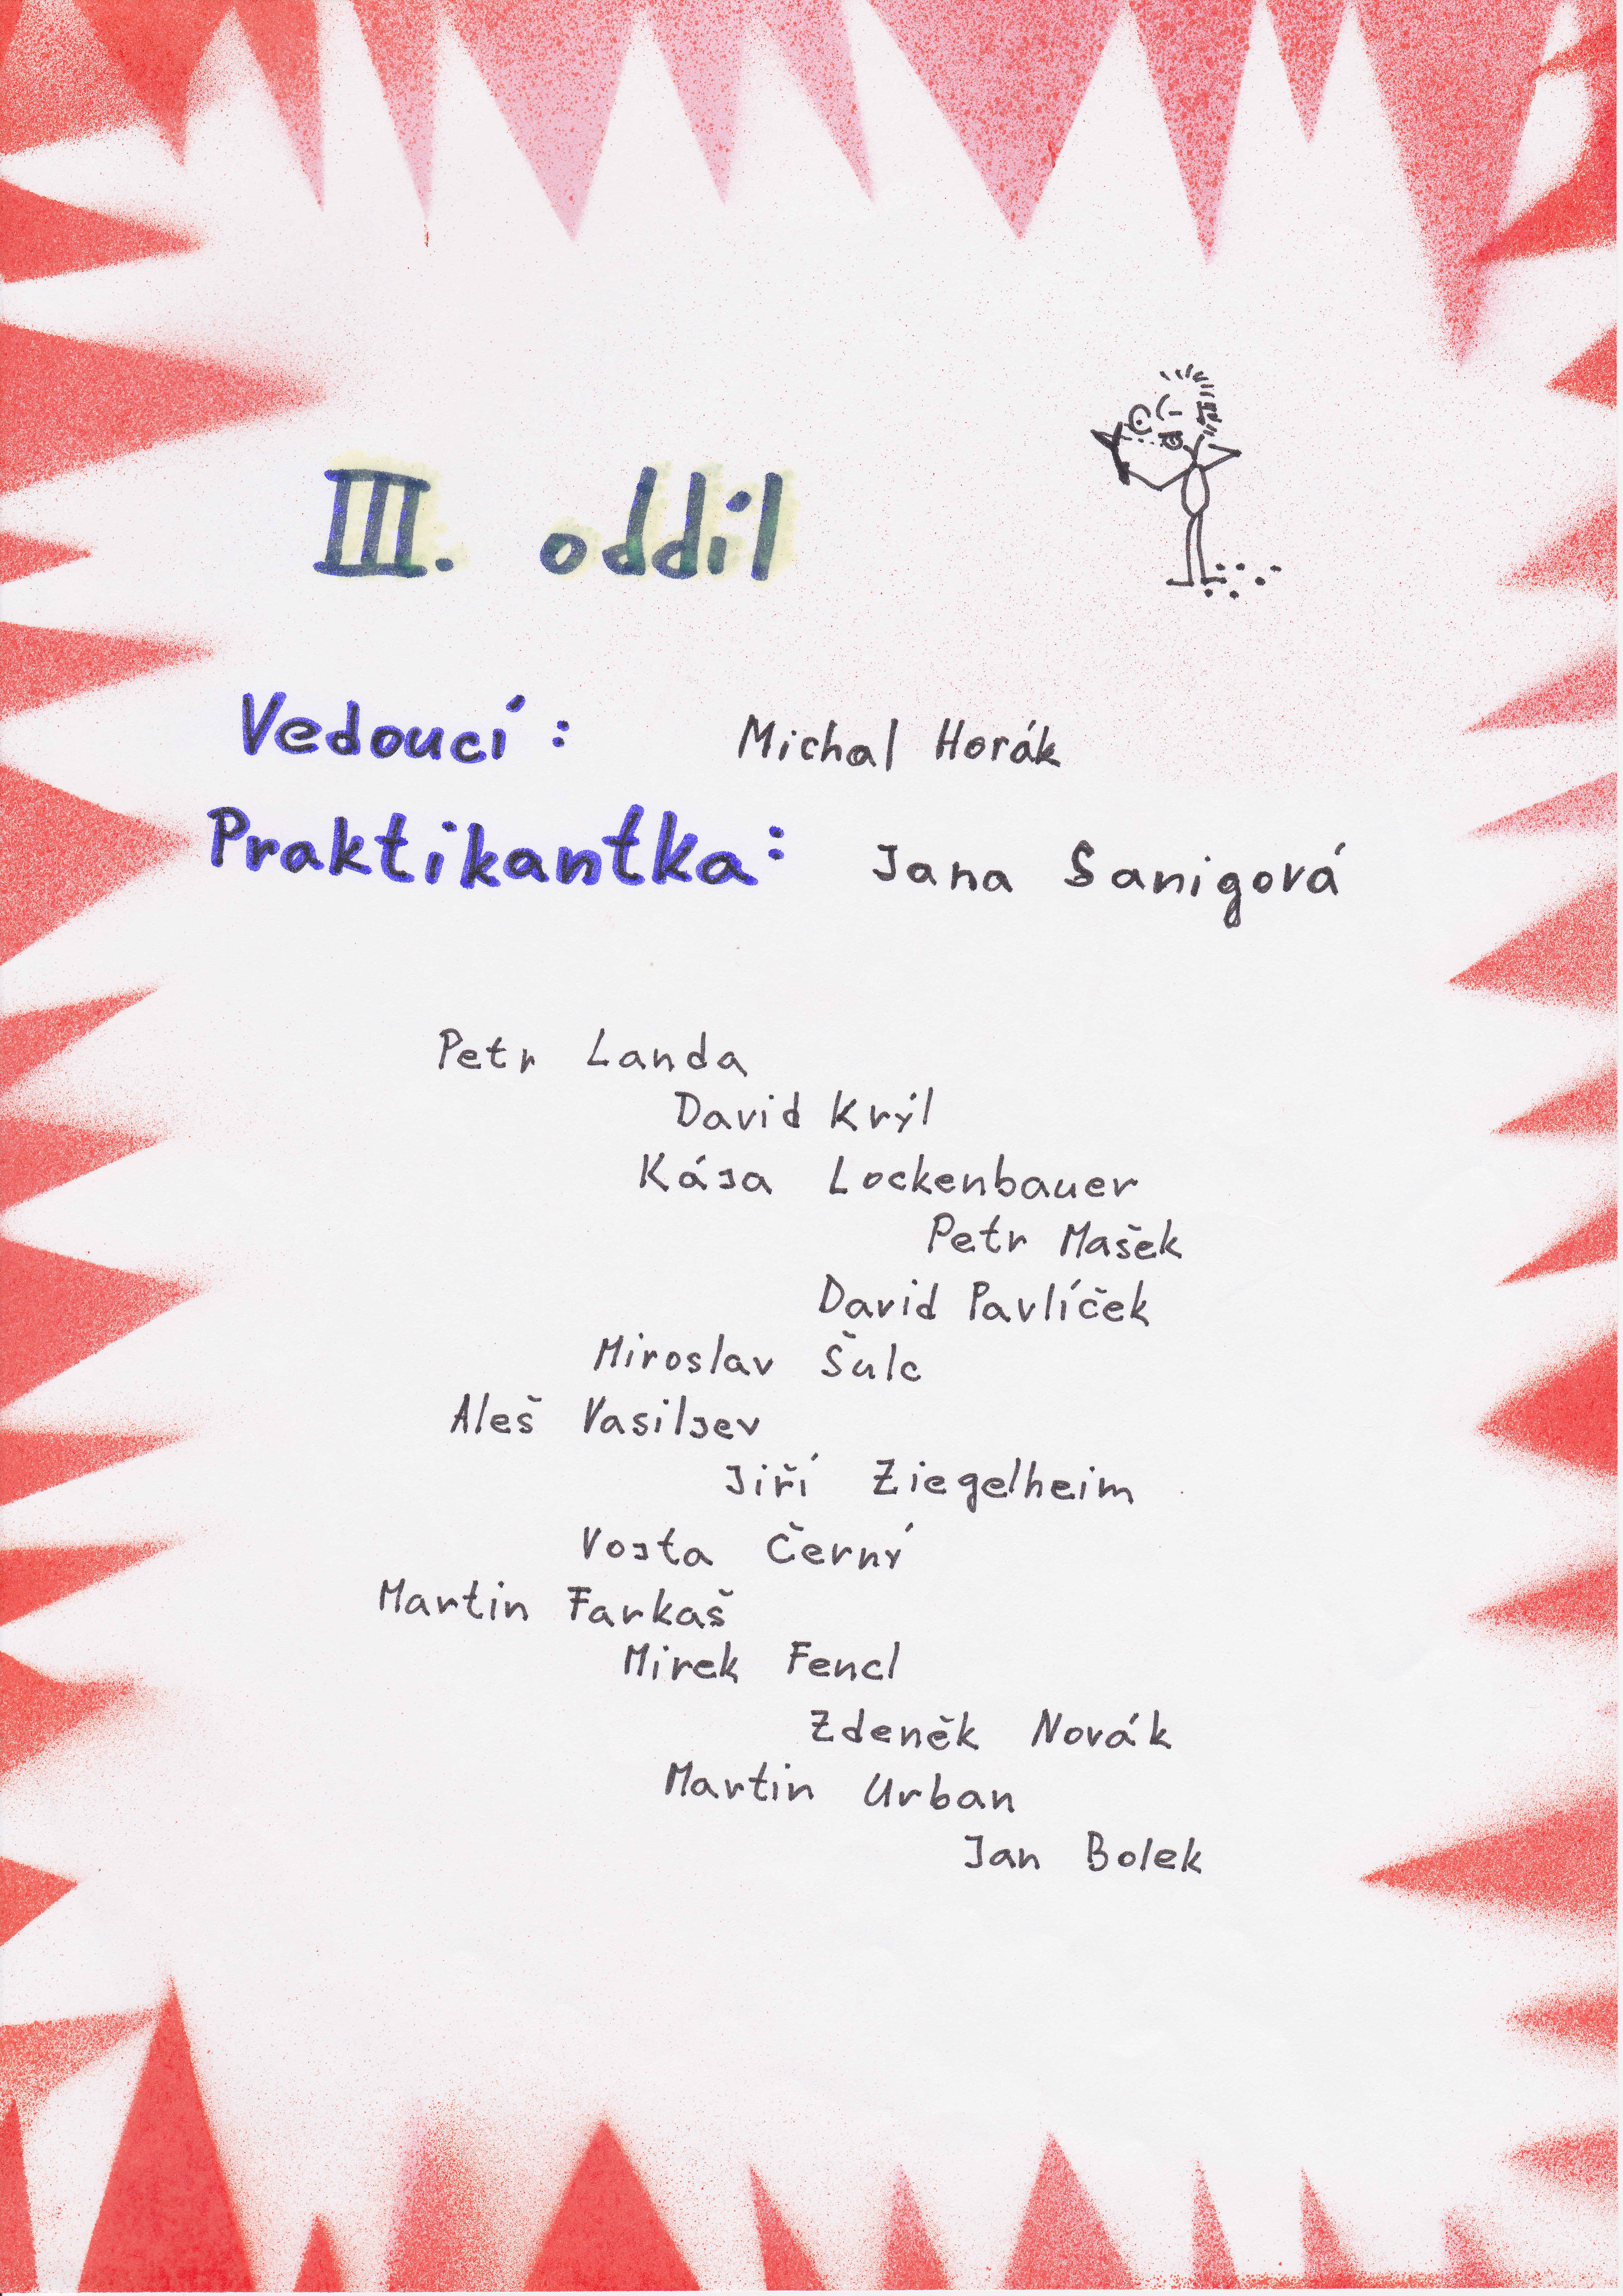 III. oddíl
Vedoucí: Michal Horák
Praktikantka: Jana Sanigová
Petr Landa
David Krýl
Kája Lockenbauer
Petr Mašek
David Pavlíček
Miroslav Šulc
Aleš Vasiljev
Jiří Ziegelheim
Vojta Černý
Martin Farkaš
Mirek Fencl
Zdeněk Novák
Martin Urban
Jan Bolek